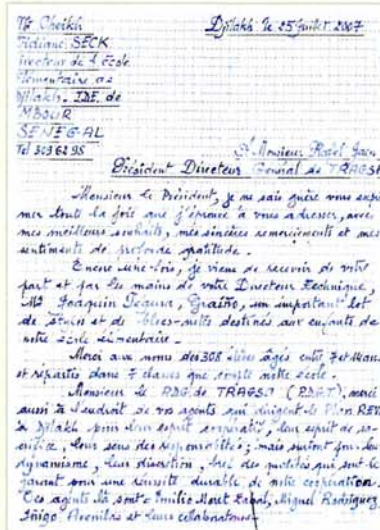 Mr Cheikh
Tidiane SECK
Directeur de l'école
élémentaire de
Djilakh. IDE. de
MBOUR
SENEGAL
Tel 303 62 98
Djilakh le 25 Juillet 2007
A Monsieur
Président Directeur Général de TRAGSA
Monsieur le Président, je ne sais guère vous expri
mer toute la joie que j'éprouve à vous adresser, avec
mes meilleurs souhaits, mes sincères remerciements et mes
sentiments de profonde gratitude.
Encore une fois, je viens de recevoir de votre
part et par les mains de votre Directeur Technique,
Mr Joaquin un important lot
de stylos et de blocs-notes destinés aux enfants de
notre école élémentaire.
Merci aux noms des 308 élèves âgés entre 7 et 14 ans
et répartis dans 7 classes que compte notre école.
Monsieur le P.D.G. de TRAGSA (P.D.G.T), merci
aussi à l'endroit de vos agents qui dirigent le Plan REVA
à Djilakh pour leur esprit coopératif, leur esprit de sa-
crifice, leur sens des responsabilités; mais surtout pour leur
dynamisme, leur discrétion, bref des qualités qui sont le
garant pour une réussite durable de notre coopération.
Ces agents là sont: Emilio Moret Miguel Rodriguez,
Iñigo et leurs collaborateurs